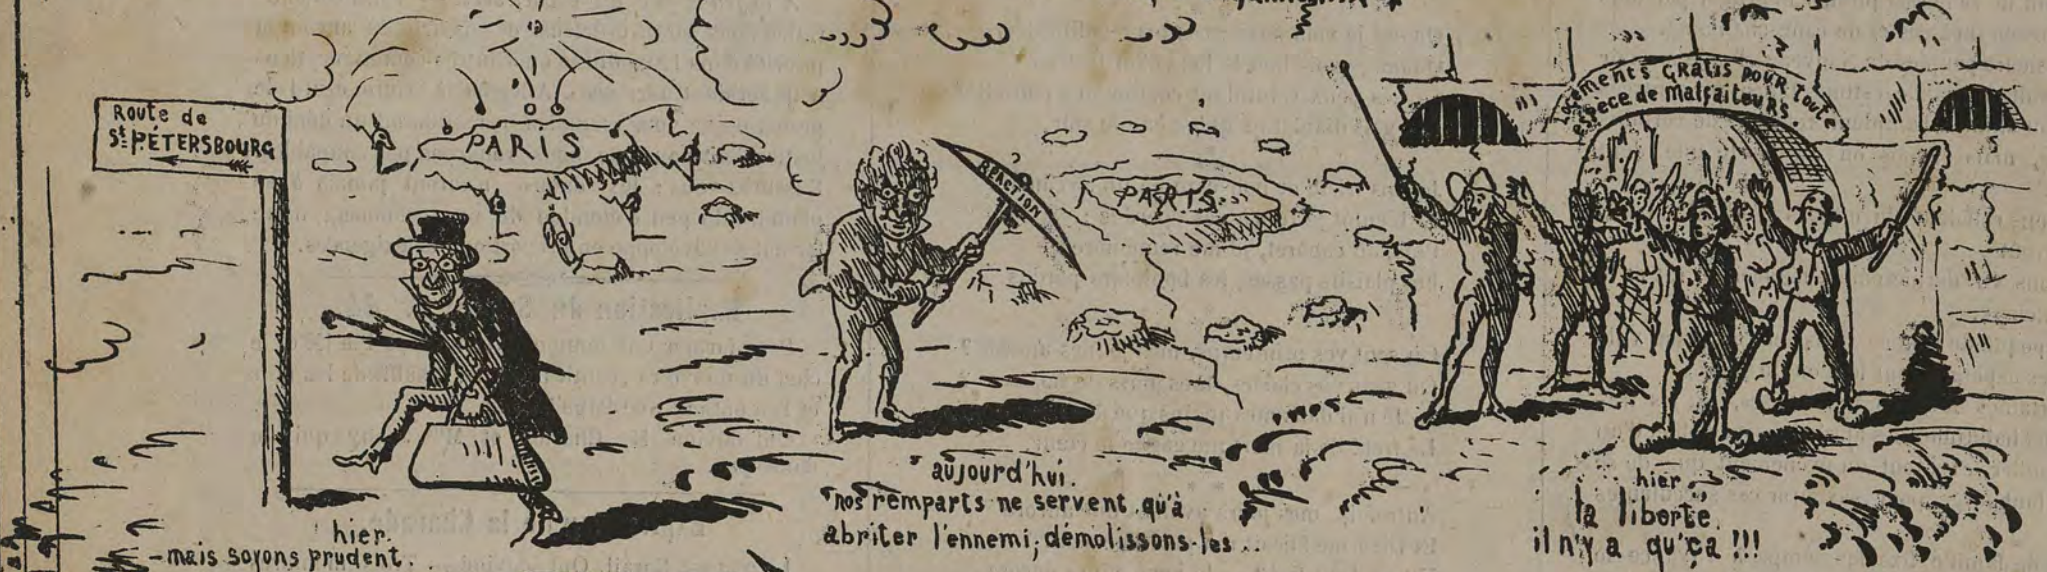 Route de
St. PÉTERSBOURG
PARIS
hier.
-mais soyons prudent.
REACTION
PARIS
aujourd'hui.
nos remparts ne servent qu'à
abriter l'ennemi, démolissons-les..
Logements GRATIS POUR TOUTE
espece de Malfaiteurs
hier.
la liberte
il n'y a qu'ça!!!